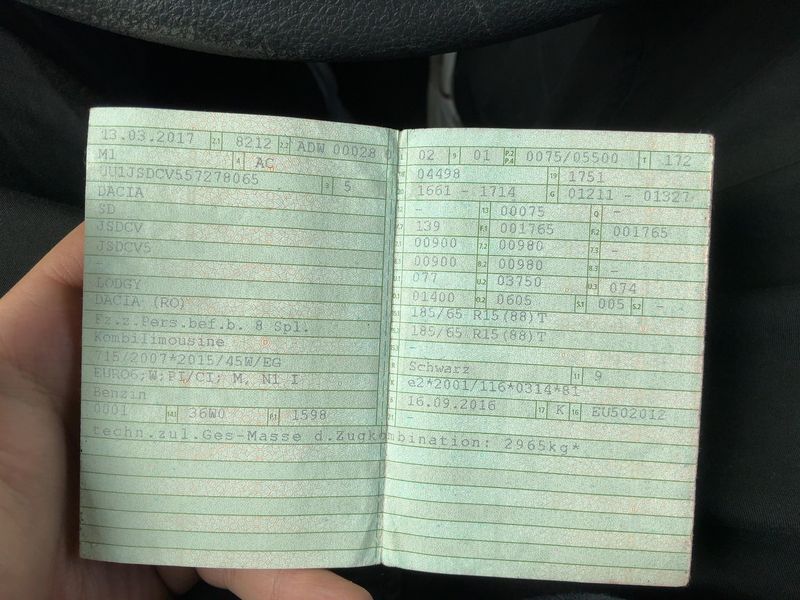 13.03.2017 2.1 8212 2.2 ADW 00028
M1 4 AC
UU1JSDCV557278065 3 5
DACIA
SD
JSDCV
JSDCV5
-
LODGY
DACIA (RO)
Fz.z.Pers.bef.b. 8 Spl.
Kombilimousine
715/2007*2015/45W/EG
EURO6;W;PI/CI; M, N1 I
Benzin
0001 14.1 36W0 P.1 1598
techn.zul.Ges-Masse d.Zugkombination: 2965kg*
02 9 01 P.2 P.4 0075/05500 T 172
04498 19 1751
1661 - 1714 G 01211 - 01327
- 13 00075 Q -
139 F.1 001765 F.2 001765
00900 7.2 00980 7.3 -
00900 8.2 00980 8.3 -
077 U.2 03750 U.3 074
01400 O.2 0605 S.1 005 S.2 -
185/65 R15(88)T
185/65 R15(88)T
-
Schwarz 11 9
e2*2001/116*0314*81
16.09.2016 17 K 16 EU502012
-